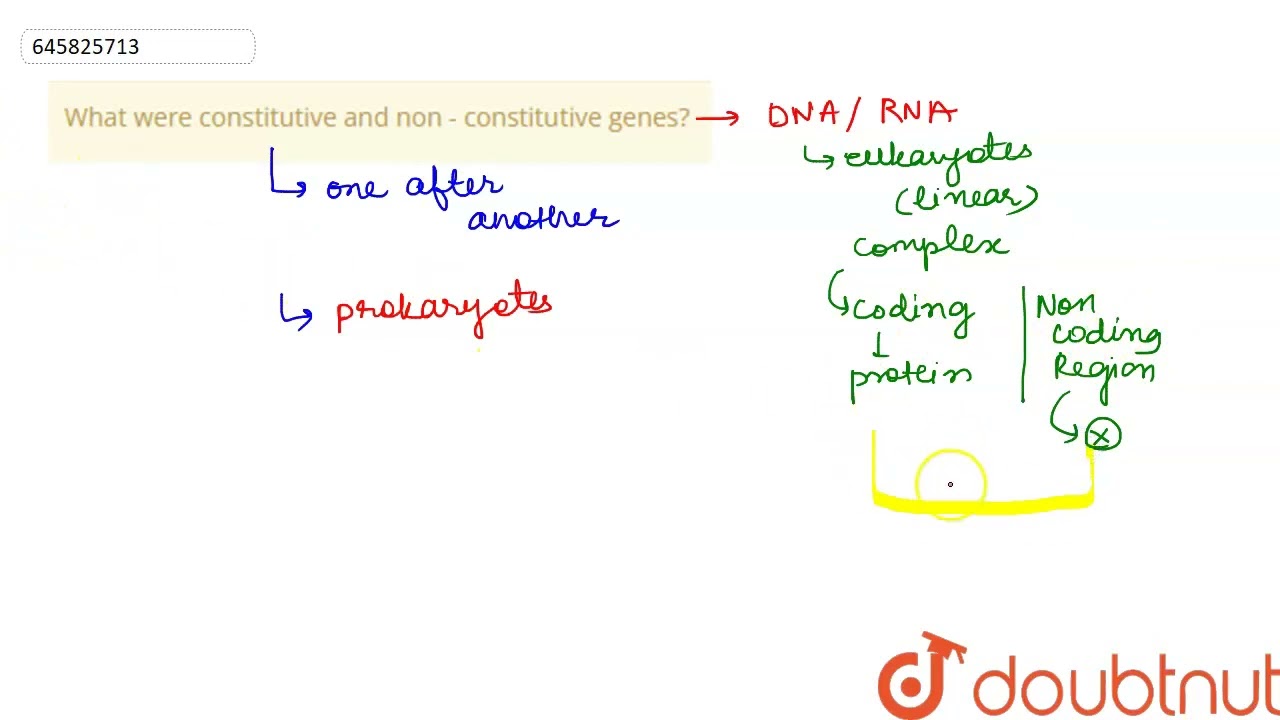 645825713
What were constitutive and non - constitutive genes? → DNA / RNA
↳ one after
another
↳ prokaryotes
↳ eukaryotes
(linear)
complex
↳ coding
↓
protein
Non
coding
Region
↳ x
doubtnut